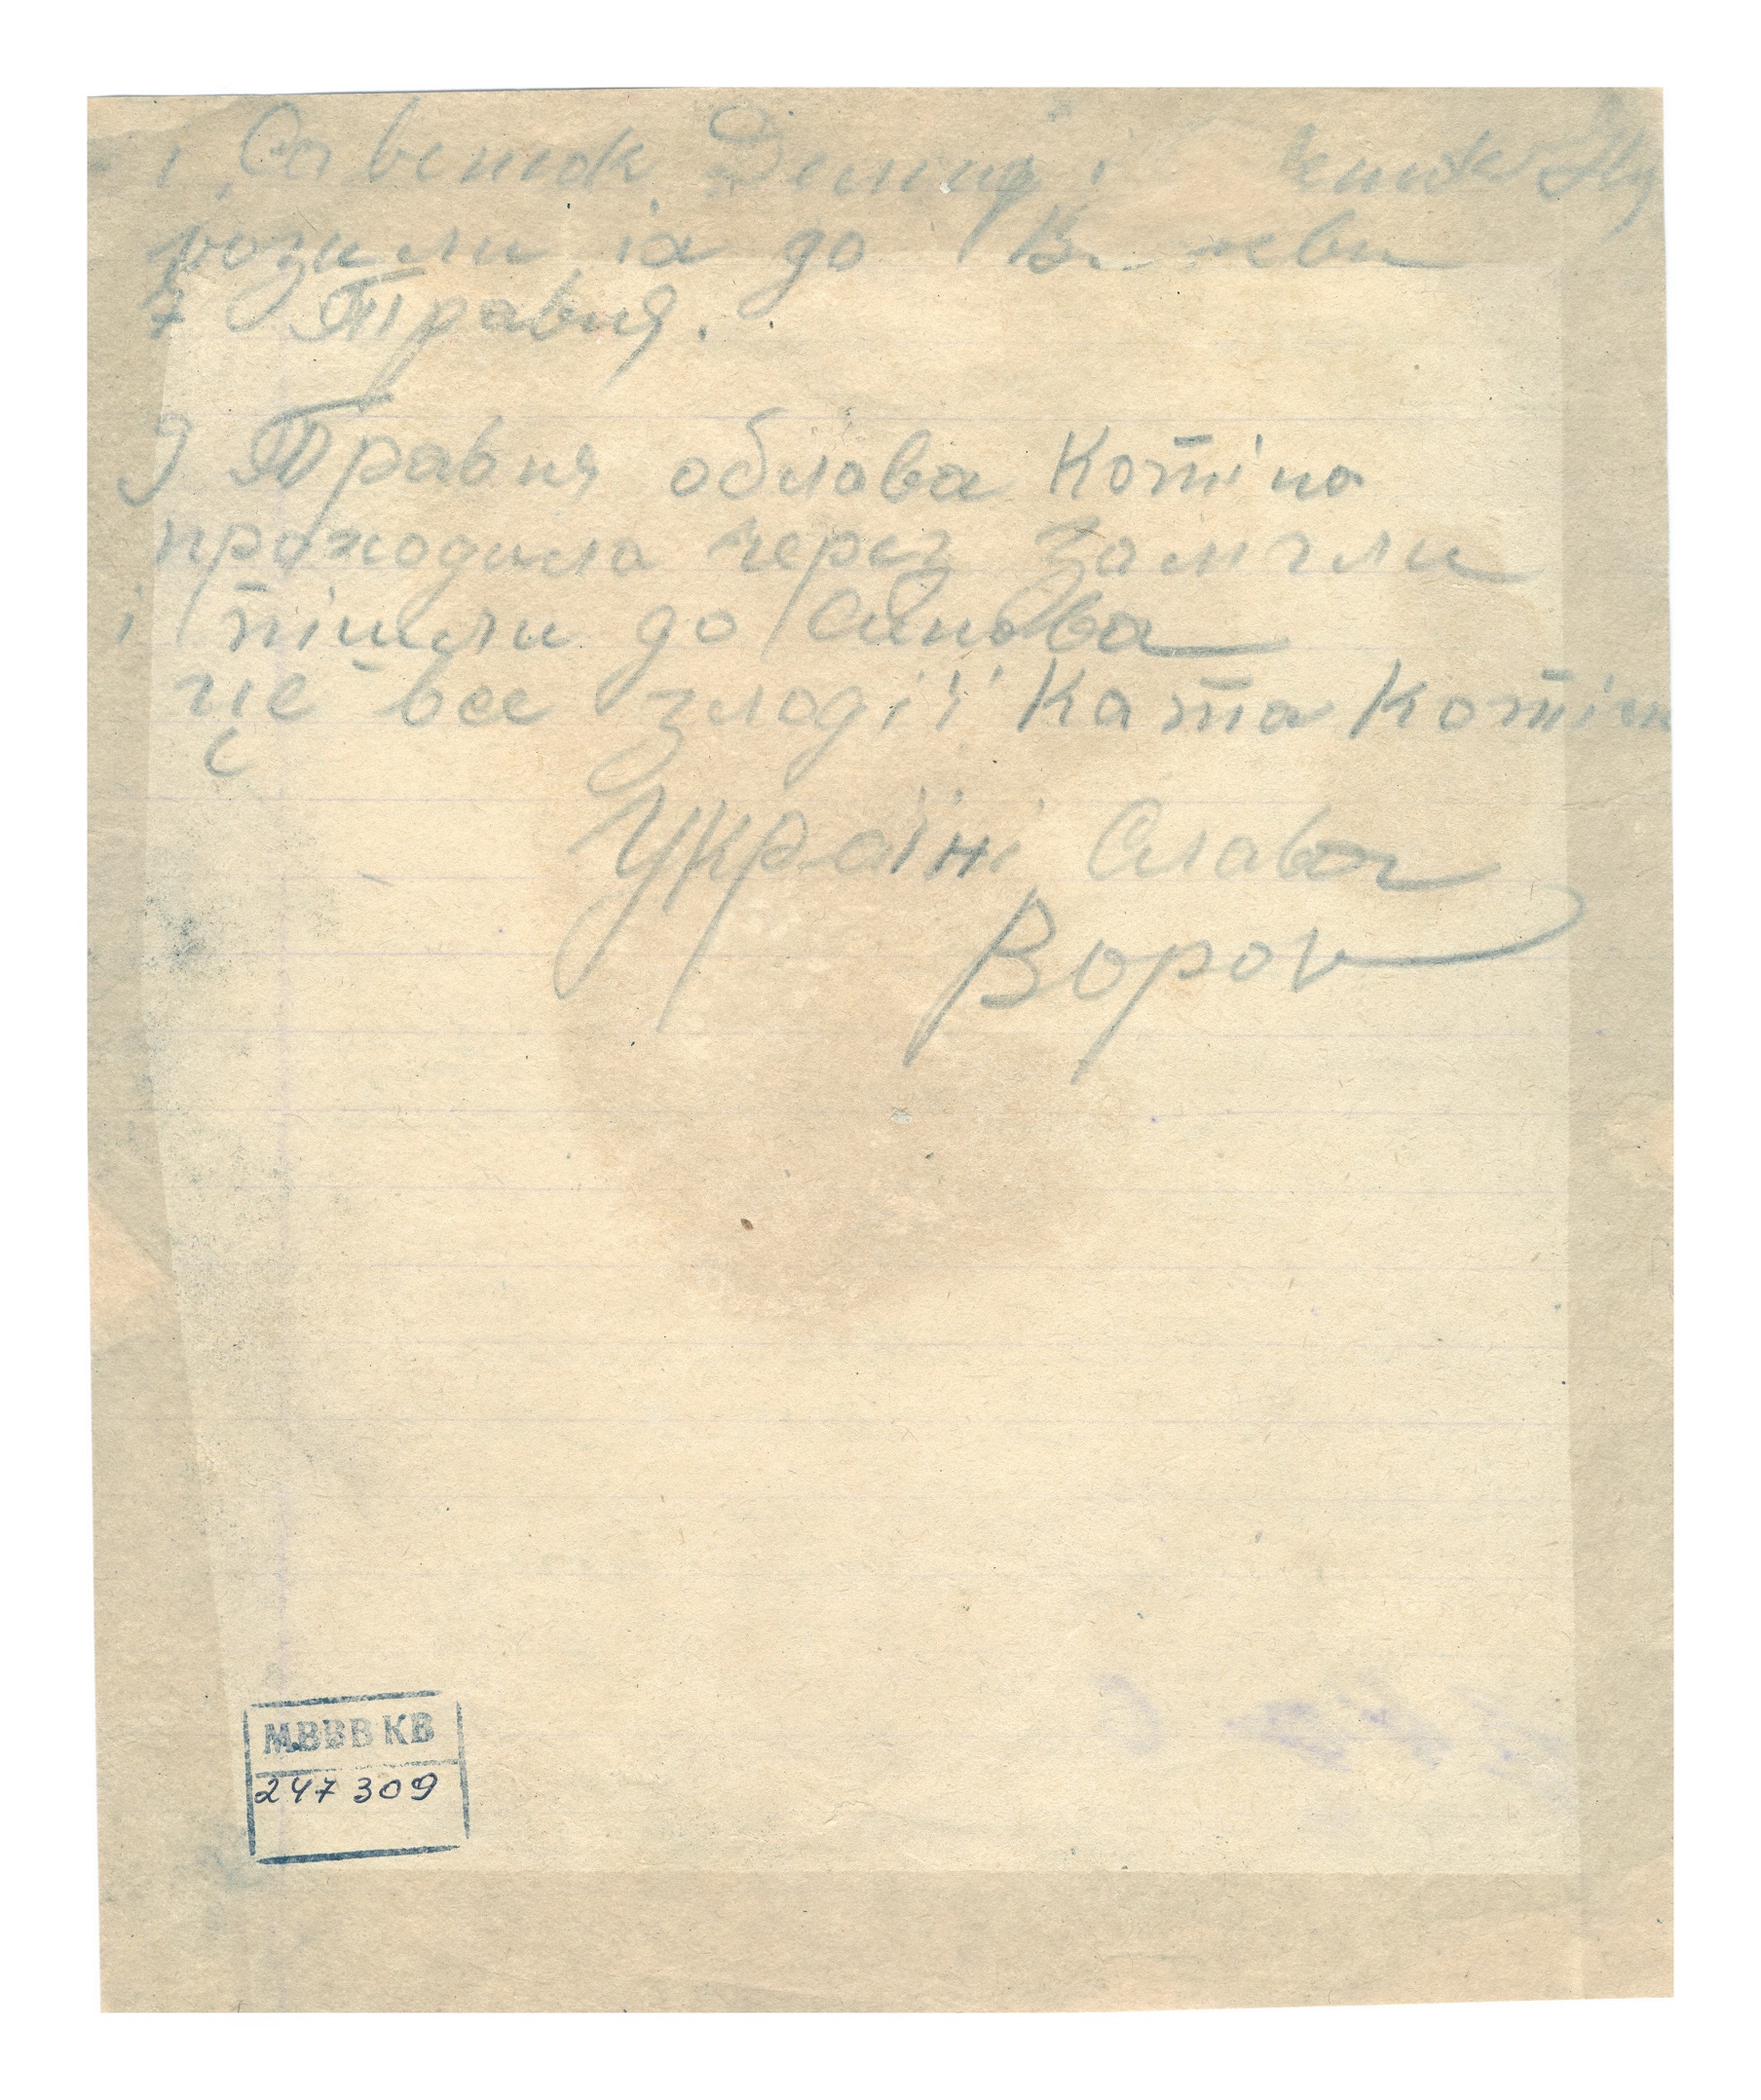 і Савенюк Демид і
їх до
7 Травня.
9 Травня облава Котіна
проходила через Замгли
і пішли до
це все злодії Ката Котін
Україні Слава
Ворон
МВВВ КВ
247 309